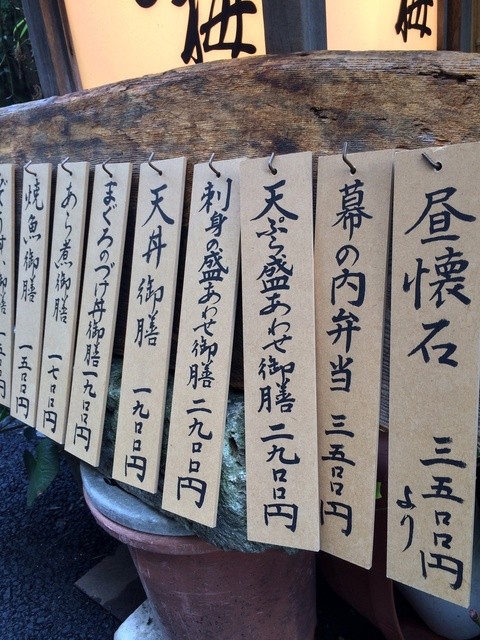 昼懐石 三五〇〇円より
幕の内弁当 三五〇〇円
天ぷら盛あわせ御膳 二九〇〇円
刺身の盛あわせ御膳 二九〇〇円
天丼御膳 一九〇〇円
まぐろのづけ丼御膳 一九〇〇円
あら煮御膳 一七〇〇円
焼魚御膳 一五〇〇円